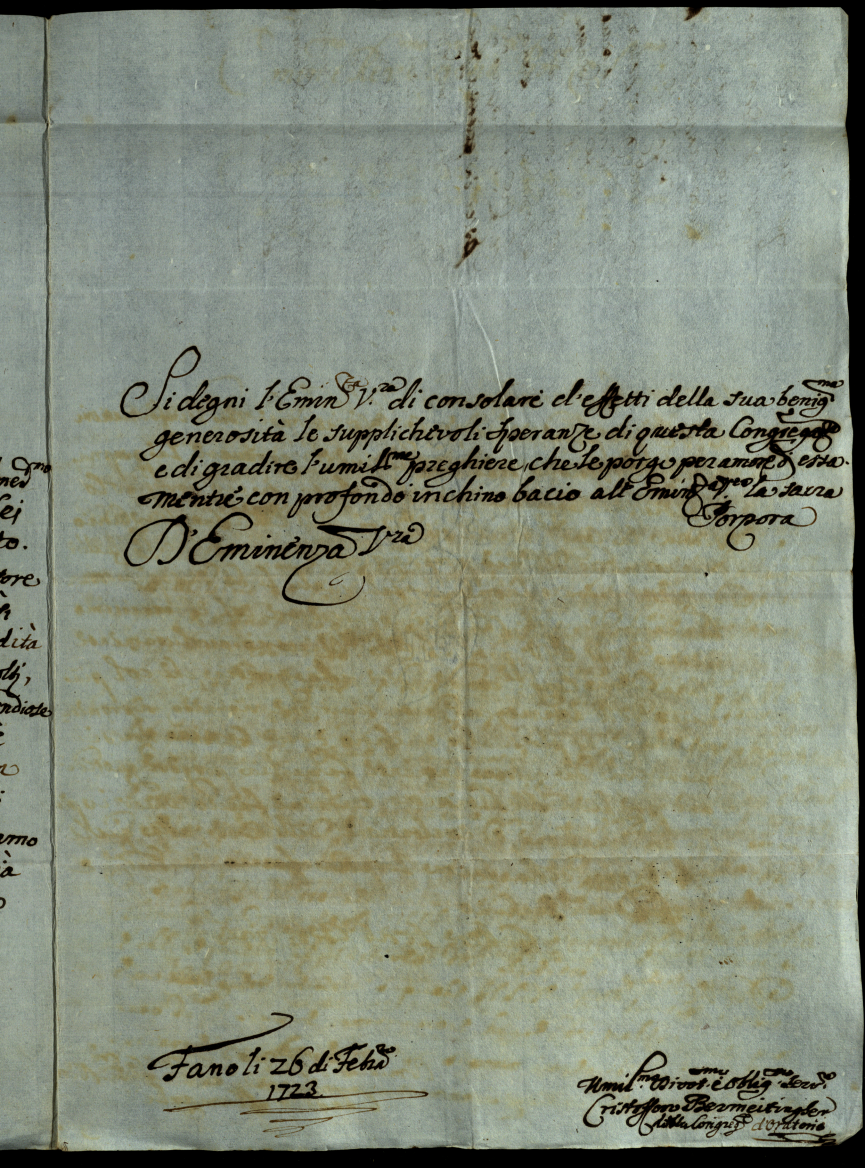 Si degni l'Emin.za V.ra di consolare cl'effetti della sua benig.ma
generosità le supplichevoli speranze di questa Congreg.ne
e di gradire l'umil.me preghiere, che le porge per amore d'essa.
mentre con profondo inchino bacio all' Emin.za V. la sacra
Porpora
D'Eminenza V.ra
Fano li 26 di Feb.ro
1723.
Umil.mo Divot.mo e oblig.mo Serv.e
Cristofforo
della Congreg.e d'Oratorio
ned.mo
lei
to.
tore
dità
ndiose
amo